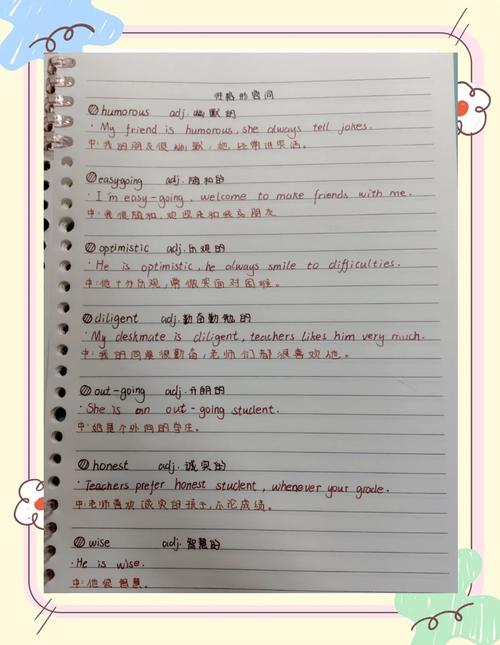 性格形容词
humorous adj. 幽默的
· My friend is humorous, she always tell jokes.
中: 我的朋友很幽默, 她经常讲笑话。
easygoing adj. 随和的
· I'm easy-going, welcome to make friends with me.
中: 我很随和, 欢迎来和我交朋友
optimistic adj. 乐观的
· He is optimistic, he always smile to difficulties.
中: 他十分乐观, 常微笑面对困难。
diligent adj. 勤奋勤勉的
· My deskmate is diligent, teachers likes him very much.
中: 我的同桌很勤奋, 老师们都很喜欢他。
out-going adj. 开朗的
· She is an out-going student.
中: 她是个外向的学生。
honest adj. 诚实的
· Teachers prefer honest student, whenever your grade.
中: 老师喜欢诚实的孩子, 不论成绩。
wise adj. 智慧的
· He is wise.
中: 他很智慧。